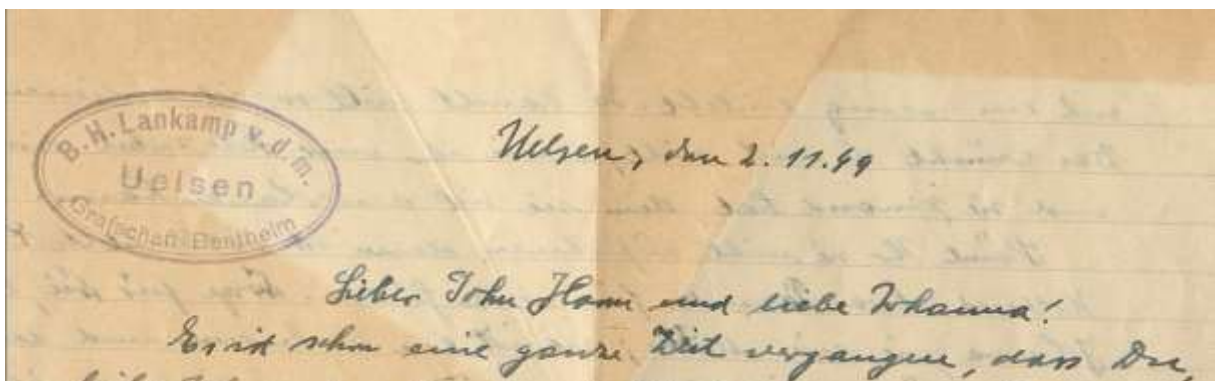 B.H. Lankamp v.d.m.
Uelsen
Grafschaft Bentheim
Uelsen, den 2. 11. 49
Lieber John Harm und liebe Johanna!
Es ist schon eine ganze Zeit vergangen, dass Du,